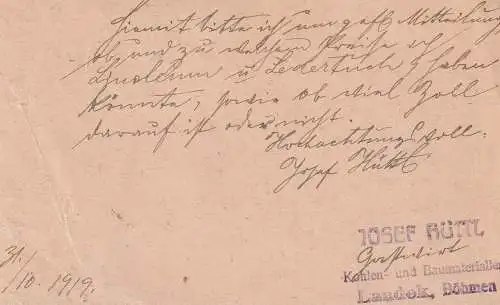 Hiemit bitte ich um gefl. Mitteilung
ob und zu welchem Preise ich
Linoleum u Ledertuch haben
könnte, sowie ob viel Zoll
darauf ist oder nicht.
Hochachtungsvoll.
Josef Hüttl
JOSEF HÜTTL
Gastwirt
Kohlen- und Baumaterialien
Landek, Böhmen
31./
/10. 1919.